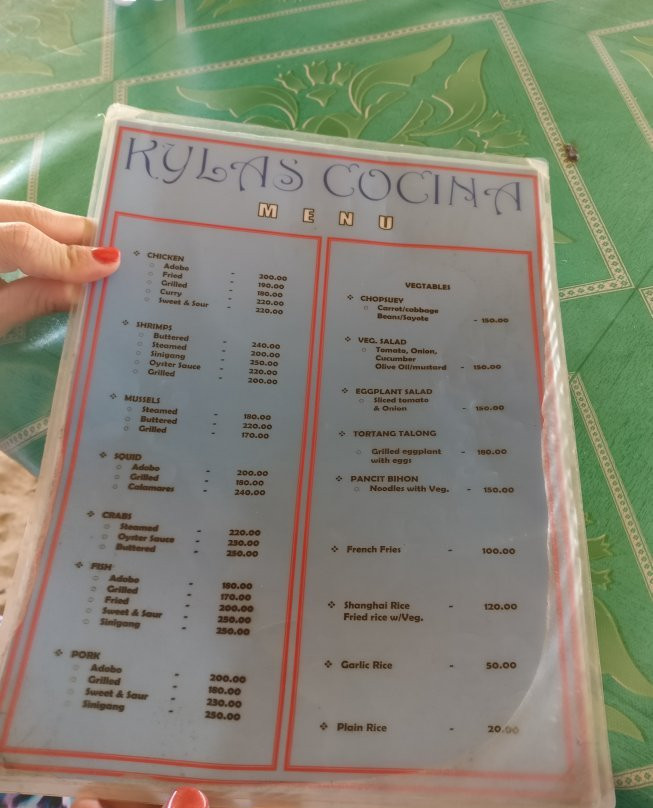 KYLAS COCINA
MENU
CHICKEN
Adobo - 200.00
Fried - 190.00
Grilled - 180.00
Curry - 220.00
Sweet & Sour - 220.00
SHRIMPS
Buttered - 240.00
Steamed - 200.00
Sinigang - 250.00
Oyster Sauce - 220.00
Grilled - 200.00
MUSSELS
Steamed - 180.00
Buttered - 220.00
Grilled - 170.00
SQUID
Adobo - 200.00
Grilled - 180.00
Calamares - 240.00
CRABS
Steamed - 220.00
Oyster Sauce - 230.00
Buttered - 250.00
FISH
Adobo - 180.00
Grilled - 170.00
Fried - 200.00
Sweet & Saur - 250.00
Sinigang - 250.00
PORK
Adobo - 200.00
Grilled - 180.00
Sweet & Saur - 230.00
Sinigang - 250.00
VEGTABLES
CHOPSUEY
Carrot/cabbage
Beans/Sayote - 150.00
VEG. SALAD
Tomato, Onion,
Cucumber
Olive Oil/mustard - 150.00
EGGPLANT SALAD
Sliced tomato
& Onion - 150.00
TORTANG TALONG
Grilled eggplant - 180.00
with eggs
PANCIT BIHON
Noodles with Veg. - 150.00
French Fries - 100.00
Shanghai Rice - 120.00
Fried rice w/Veg.
Garlic Rice - 50.00
Plain Rice - 20.00